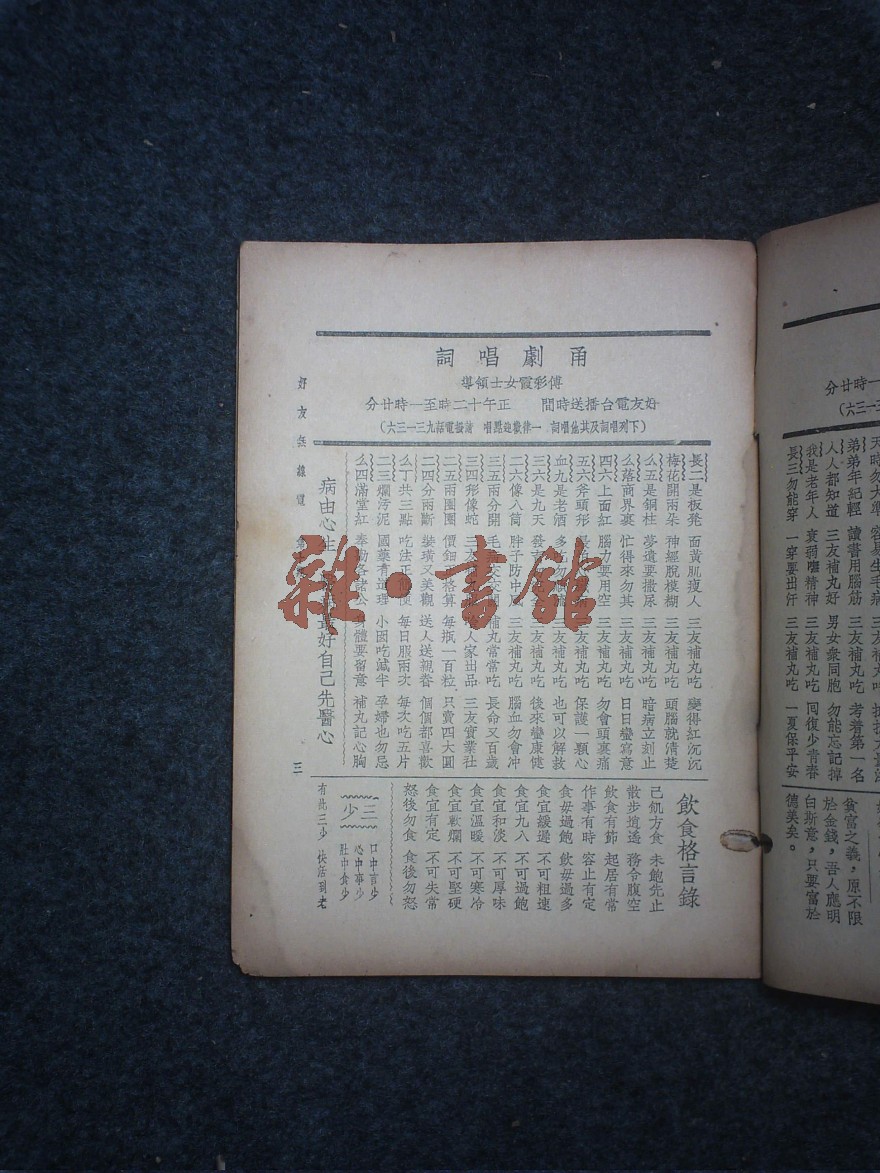 甬劇唱詞
傅彩霞女士領導
好友電台播送時間 正午十二時至一時廿分
(下列唱詞及其他唱詞 一律歡迎點唱 請撥電話九三一三六)
長二是板凳 面黃肌瘦人 三友補丸吃 變得紅沉沉
梅花開兩朵 神經脫模糊 三友補丸吃 頭腦就清楚
么五是銅柱 夢遺要撒尿 三友補丸吃 暗病立刻止
么落商界裏 忙得來勿其 三友補丸吃 日日變寫意
四六上面紅 腦力要用空 三友補丸吃 勿會頭裏痛
五六斧頭形 三友補丸吃 保護一顆心
血九是老酒 多吃 三友補丸吃 也可以解救
三六是九天 發 三友補丸吃 後來變康健
二六像八筒 胖子防中 三友補丸吃 腦血勿會冲
三五兩分開 毛 補丸常常吃 長命又百歲
三四形像蛇 三友 人家出品 三友實業社
二五兩團團 價鈿 格算 每瓶一百粒 只賣四大圓
二四分兩斷 裝璜又美觀 送人送親眷 個個都喜歡
么丁共三點 吃法正 便 每日服兩次 每次吃五片
二三爛污泥 國藥有道理 小囡吃減半 孕婦也勿忌
么四滿堂紅 奉勸各諸公 身體要留意 補丸記心胸
病由心生 最好自己先醫心
飲食格言錄
己飢方食 未飽先止
散步逍遙 務令腹空
飲食有節 起居有常
作事有時 容止有定
食毋過飽 飲毋過多
食宜緩遲 不可粗速
食宜九八 不可過飽
食宜和淡 不可厚味
食宜溫暖 不可寒冷
食宜軟爛 不可堅硬
食宜有定 不可失常
怒後勿食 食後勿怒
三少
口中言少
心中事少
肚中食少
有此三少 快活到老
好友無線電
三
天時勿大準 容易生毛病 三友補丸吃
弟弟年紀輕 讀書用腦筋 三友補丸吃 考着第一名
人人都知道 三友補丸好 男女衆同胞 勿能忘記掉
我是老年人 衰弱嘸精神 三友補丸吃 回復少青春
長三勿能穿 一穿要出汗 三友補丸吃 一夏保平安
貧富之義，原不限
於金錢，吾人應明
白斯意，只要富於
德美矣。
雜·書館